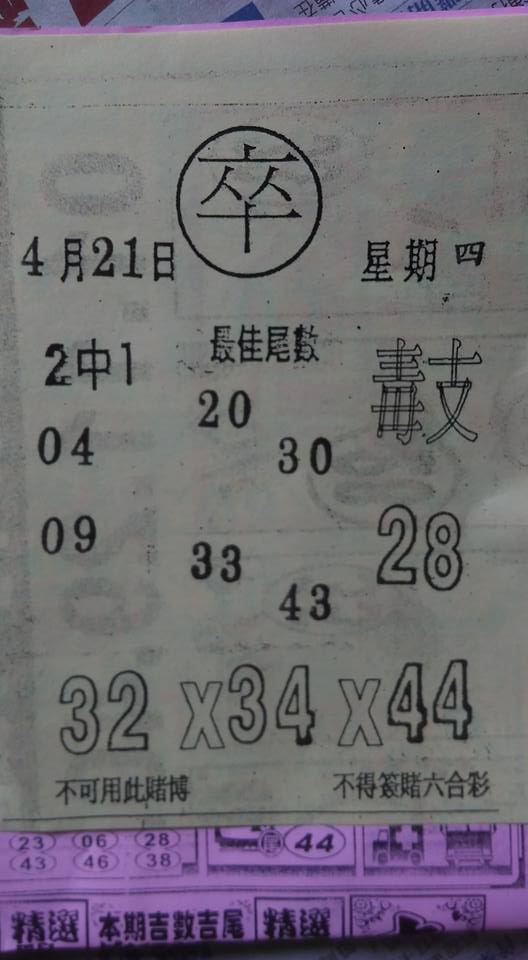 卒
4月21日
星期四
2中1
最佳尾數
毒支
20
04
30
09
33
28
43
32 X34 X44
不可用此賭博
不得簽賭六合彩
23 06 28
44
43 46 38
精選 本期吉數吉尾 精選